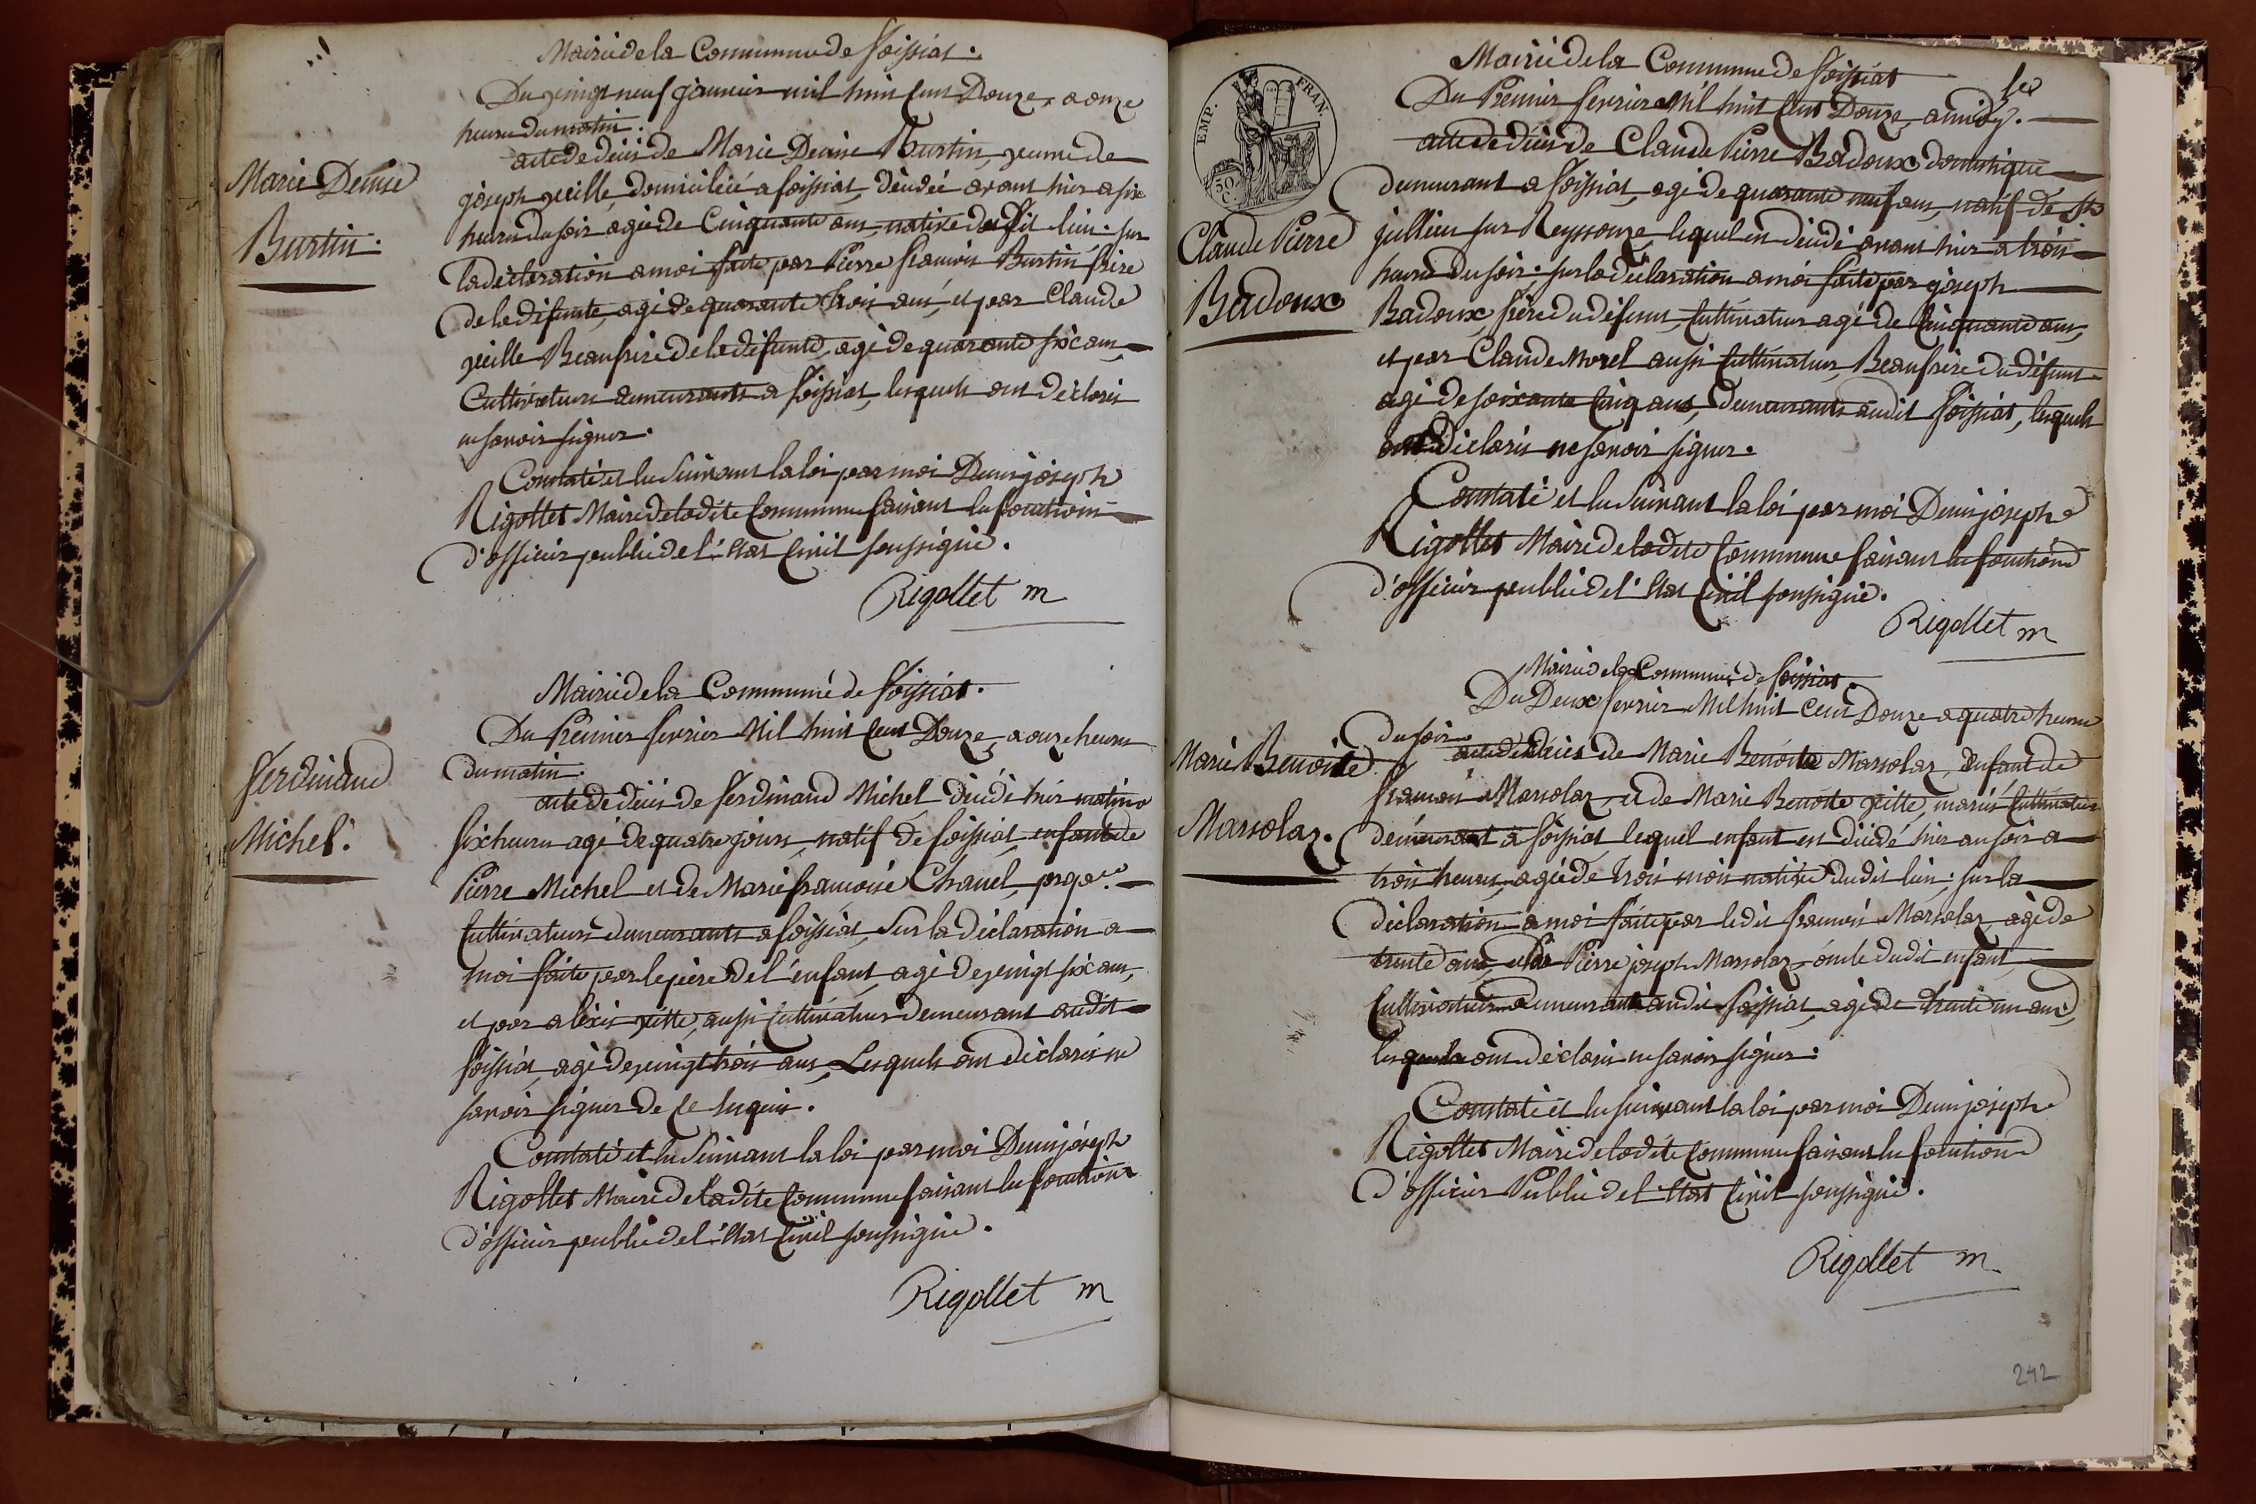 Mairie de la Commune de foissiat.
Du vingt neuf janvier mil huit cent Douze, a onze
heures du matin.
acte de décès de Marie Denise Burtin, veuve de
Marie Denise
Burtin.
joseph veille, domiciliée a foissiat, décédée avant hier a six
heures du soir agée de Cinquante ans, native dudit lieu. sur
la déclaration a moi faite par Pierre francois Burtin frère
de la défunte, agé de quarante trois ans, et par Claude
veille Beaufrère de la défunte, agé de quarante six ans,
Cultivateurs demeurants a foissiat, lesquels ont déclarés
ne savoir signer.
Constaté et lu suivant la loi par moi Denis joseph
Rigollet Maire de ladite Commune faisant les fonctions
d'officier public de l'état Civil soussigné.
Rigollet m
Mairie de la Commune de foissiat.
Du Premier fevrier Mil huit Cent Douze, a onze heures
du matin.
ferdinand
Michel.
acte de décès de ferdinand Michel décédé hier matin a
six heures agé de quatre jours, natif de foissiat, enfant de
Pierre Michel et de Marie francoise Chanel,
Cultivateurs demeurants a foissiat, Sur la déclaration a
moi faite par le père de l'enfant, agé de vingt six ans,
et par alexis vitte, aussi Cultivateur demeurant audit
foissiat, agé de vingt trois ans, Lesquels ont déclarés ne
savoir signer de ce requis.
Constaté et lu Suivant la loi par moi Denis joseph
Rigollet Maire de ladite Commune faisant les fonctions
d'officier public de l'état Civil soussigné.
Rigollet m
EMP. FRAN.
50 C.
Mairie de la Commune de foissiat
Du Premier fevrier Mil huit Cent Douze, a midy.
acte de décès de Claude Pierre Badoux domestique
Claude Pierre
Badoux
demeurant a foissiat, agé de quarante neuf ans, natif de St
jullien sur Reyssouze, lequel est décédé avant hier a trois
heures du soir. sur la déclaration a moi faite par joseph
Badoux, frère du défunt, Cultivateur agé de Cinquante ans,
et par Claude Morel aussi Cultivateur, Beaufrère du défunt
agé de soixante Cinq ans, Demeurants audit foissiat, lesquels
ont déclarés ne savoir signer.
Constaté et lu suivant la loi par moi Denis joseph
Rigollet Maire de ladite Commune faisant les fonctions
d'officier public de l'état Civil soussigné.
Rigollet m
Mairie de la Commune de foissiat.
Du Deux fevrier Mil huit Cent Douze a quatre heures
du soir
Marie Benoite
Marsolaz.
acte de décès de Marie Benoite Marsolaz, enfant de
francois Marsolaz, et de Marie Benoite vitte, mariés Cultivateurs
demeurant a foissiat lequel enfant est décédé hier au soir a
trois heures, agée de trois mois native dudit lieu. sur la
déclaration a moi faite par ledit francois Marsolaz, agé de
trente ans, et par Pierre joseph Marsolaz oncle dudit enfant,
Cultivateurs demeurant audit foissiat, agé de trente un ans,
lesquels ont déclarés ne savoir signer.
Constaté et lu suivant la loi par moi Denis joseph
Rigollet Maire de ladite Commune faisant les fonctions
d'officier Public de l'état Civil soussigné.
Rigollet m
242